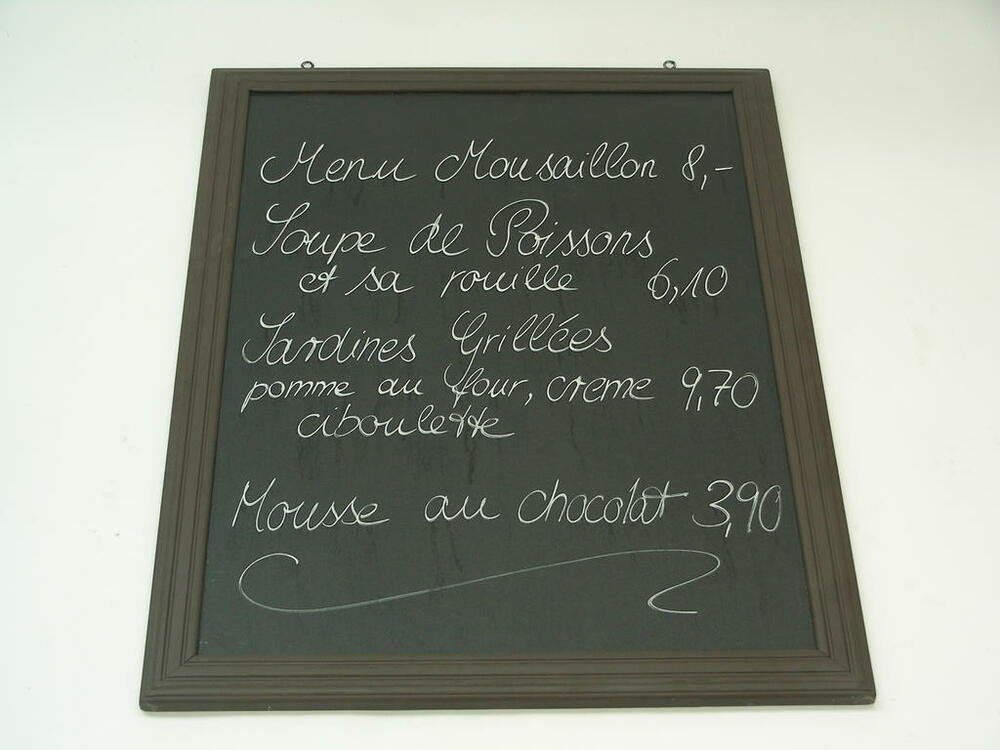 Menu Mousaillon 8,-
Soupe de Poissons
et sa rouille 6,10
Sardines Grillées
pomme au four, creme 9,70
ciboulette
Mousse au chocolat 3,90